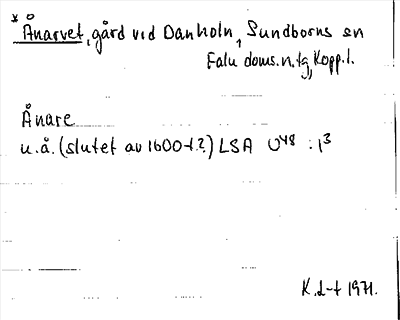 * Ånarvet, gård vid Danholn, Sundborns sn
Falu doms.n.tg, Kopp.l.
Ånare
u.å. (slutet av 1600-t.?) LSA U48 : 1³
K.d-t 1971.